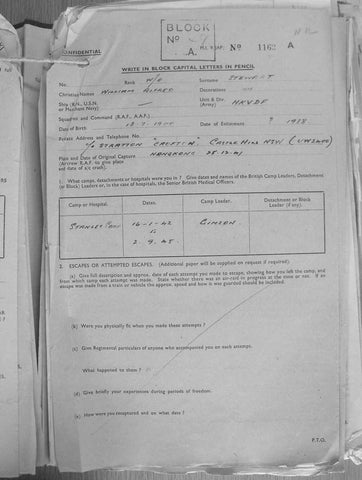 CONFIDENTIAL
BLOCK
No
A.
M.I. 9/JAP/ No 1162 A
WRITE IN BLOCK CAPITAL LETTERS IN PENCIL
No. Rank Surname STEWART
Christian Names WILLIAM ALFRED Decorations
Ship (R.N., U.S.N. or Merchant Navy) Unit & Div. (Army) HKVDF
Squadron and Command (R.A.F., A.A.F.)
Date of Birth Date of Enlistment ? 1938
Private Address and Telephone No. c/o STRATTON CASTLE HILL NSW
Place and Date of Original Capture HONGKONG 25.12.41
(Aircrew R.A.F. to give place and date of air crash).
1. What camps, departments or hospitals were you in? Give dates and names of the British Camp Leaders, Detachment
(or Block) Leaders or, in case of hospitals, the Senior British Medical Officers.
Camp or Hospital. Dates. Camp Leader. Detachment or Block Leader (if any).
16-1-42
to
2.9.45
2. ESCAPES OR ATTEMPTED ESCAPES. (Additional paper will be supplied on request if required)
(a) Give full description and approx. date of each attempt you made to escape, showing how you left the camp, and
from which camp each attempt was made. State whether there was an air-raid in progress at the time or not. If an
escape was made from a train or vehicle the approx. speed and how it was guarded should be included.
(b) Were you physically fit when you made these attempts?
(c) Give Regimental particulars of anyone who accompanied you on each attempt.
What happened to them?
(d) Give briefly your experience during periods of freedom.
(e) How were you recaptured and on what date?
P.T.O.